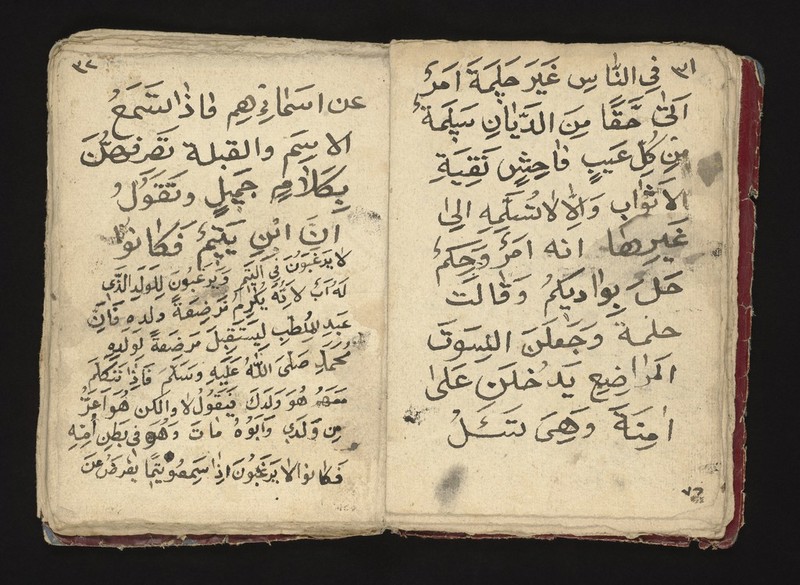 ٣١
في النَّاسِ غَيرَ حَلِمَةَ اَمرٌ
اَتىٰ حَقًا مِنَ الدَّيانِ سَلِمَةٌ
مِن كُلِ عَيبٍ فاحِشٍ نَقِيَةِ
الاَثوابِ وَالِا لاتُسَلَّمِهِ الِىٰ
غَيرِها انه امَرٌ وَحِكَمٌ
حَلَ بِواديكُمُ وَقالَت
حلمة وَجَعَلنَ النِسوَةَ
المَراضِعِ يَدخلنَ عَلىٰ
امِنَةَ وَهِىَ تَسَئَلُ
٧٢
٣٢
عن اسَمائِهِم فاذا سَمعُ
الاسِم والقبلة تَصرفهنَّ
بِكَلامٍ جَميلٍ وتَقَوُل
انَ ابنِ يَتيمٌ فَكانوا
لا يَرغَبُونَ في اليَتِم وَيَرغَبُونَ لِلوَلَدِ الذَّي
لَهُ اَبٌ لاَنَهُ يُكرِمُ مَرضِعَةً ولده فَاِنَّ
عَبد المُطلِبِ لِيَستَقبِلَ مَرضِعَةَ لِوَلَدِهِ
مُحَمَّدٍ صَلَىَ اللّٰهُ عَلَيهِ وَسَلَّمَ فَاِذا تَتَكلَم
مَعَهُ هُوَ وَلَدَكَ فيَقُول لا والكن هُوَ اَعَزُّ
مِن وَلَدِي وَاَبوُهُ ماتَ وَهُوَ في بَطنِ اُمِهِ
فَكانوا لا يَرغَبُونَ اذِا سَمِعوُ يَتيمًا يَعرَضُ مِنَ